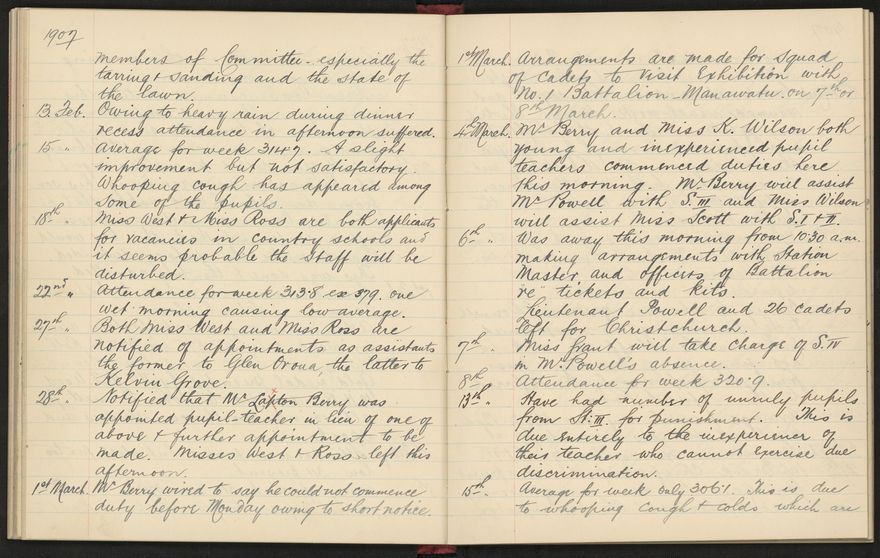 1907
members of Committee - especially the
tarring & sanding and the state of
the lawn.
13 Feb. Owing to heavy rain during dinner
recess attendance in afternoon suffered.
15 " Average for week 314.7. A slight
improvement but not satisfactory.
Whooping cough has appeared among
some of the pupils.
18th Miss West & Miss Ross are both applicants
for vacancies in country schools and
it seems probable the Staff will be
disturbed.
22nd " Attendance for week 313.8 ex 379. one
wet morning causing low average.
27th " Both Miss West and Miss Ross are
notified of appointments as assistants
the former to Glen Oroua, the latter to
Kelvin Grove.
28th " Notified that Mr Berry was
appointed pupil-teacher in lieu of one of
above & further appointment to be
made. Misses West & Ross left this
afternoon.
1st March. Mr Berry wired to say he could not commence
duty before Monday owing to short notice.
1st March. Arrangements are made for Squad
of Cadets to visit Exhibition with
No. 1 Battalion - Manawatu. on 7th or
8th March.
4th March. Mr Berry and Miss K. Wilson both
young and inexperienced pupil
teachers commenced duties here
this morning. Mr Berry will assist
Mr Powell with S.III and Miss Wilson
will assist Miss Scott with S.I & II.
6th " Was away this morning from 10.30 a.m.
making arrangements with Station
Master and officers of Battalion
re tickets and kits.
Lieutenant Powell and 26 cadets
left for Christchurch.
7th " Miss Grant will take charge of S.IV
in Mr Powell's absence.
8th Attendance for week 320.9.
13th " Have had number of unruly pupils
from St. III. for punishment. This is
due entirely to the inexperience of
their teacher who cannot exercise due
discrimination.
15th Average for week only 306.1. This is due
to whooping cough & colds which are